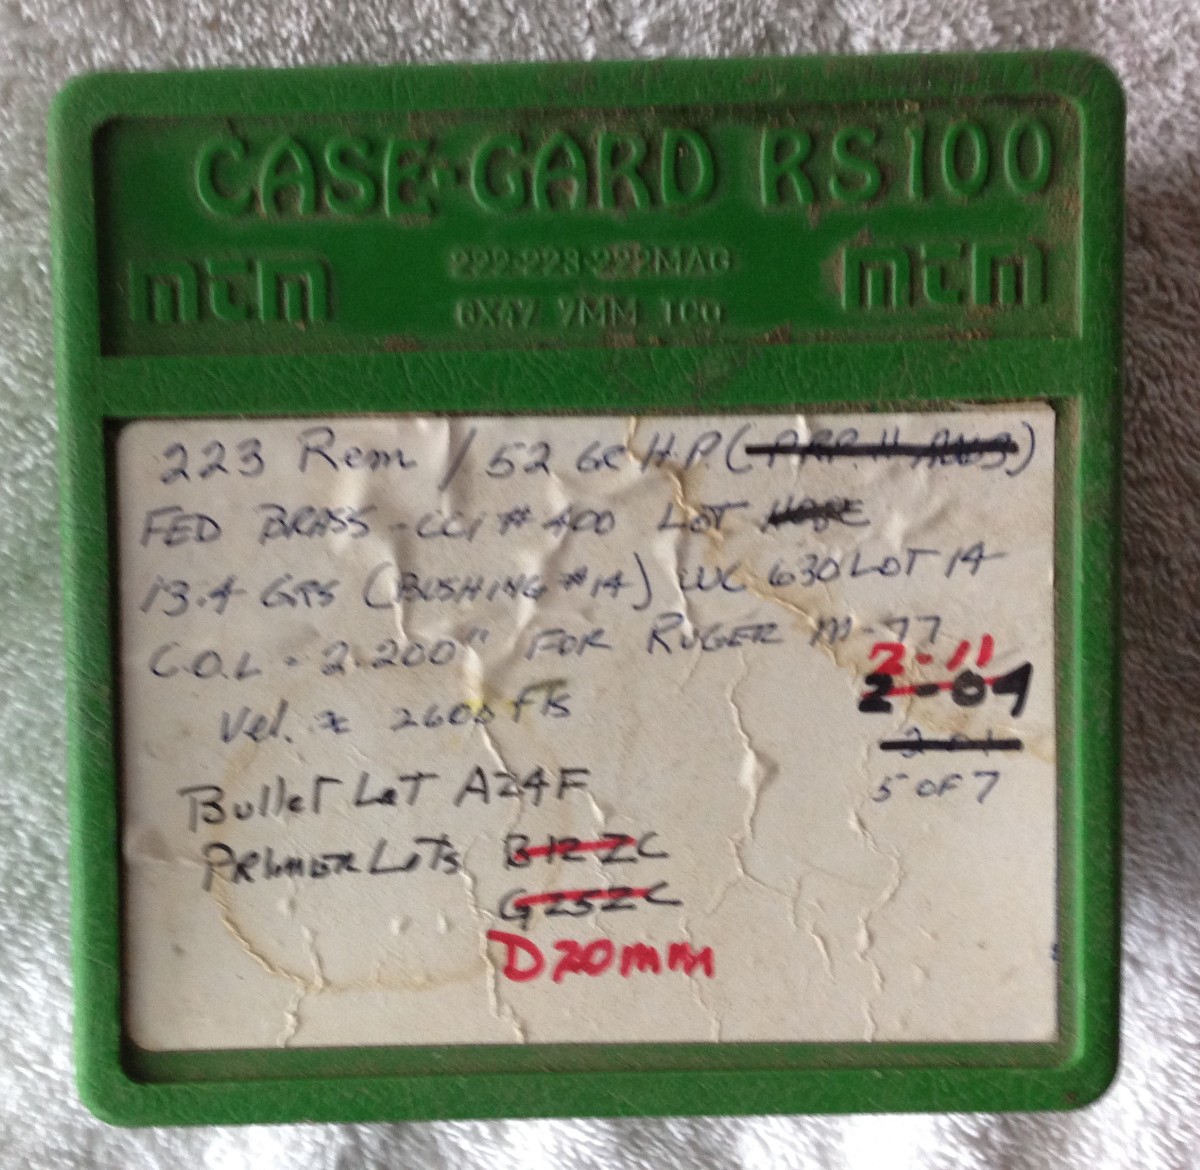 CASE-GARD RS100
mTm 222-223-222MAG mTm
6X47 7MM TCU
223 Rem / 52 GR H.P. ( )
FED BRASS - CCI # 400 LOT
13.4 GRS (BUSHING #14) WC 630 LOT 14
C.O.L - 2.200" FOR RUGER M-77
2-11
Vel. ≈ 2600 F/S
2-09
5 OF 7
Bullet Lot A24F
PRIMER LOTS B12ZC
G25ZC
D20mm